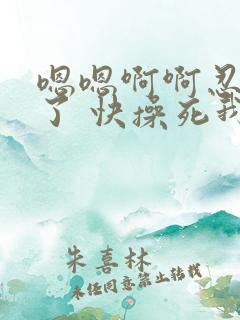 嗯嗯啊啊忍
了 快操死我
朱喜林
未经同意禁止转载